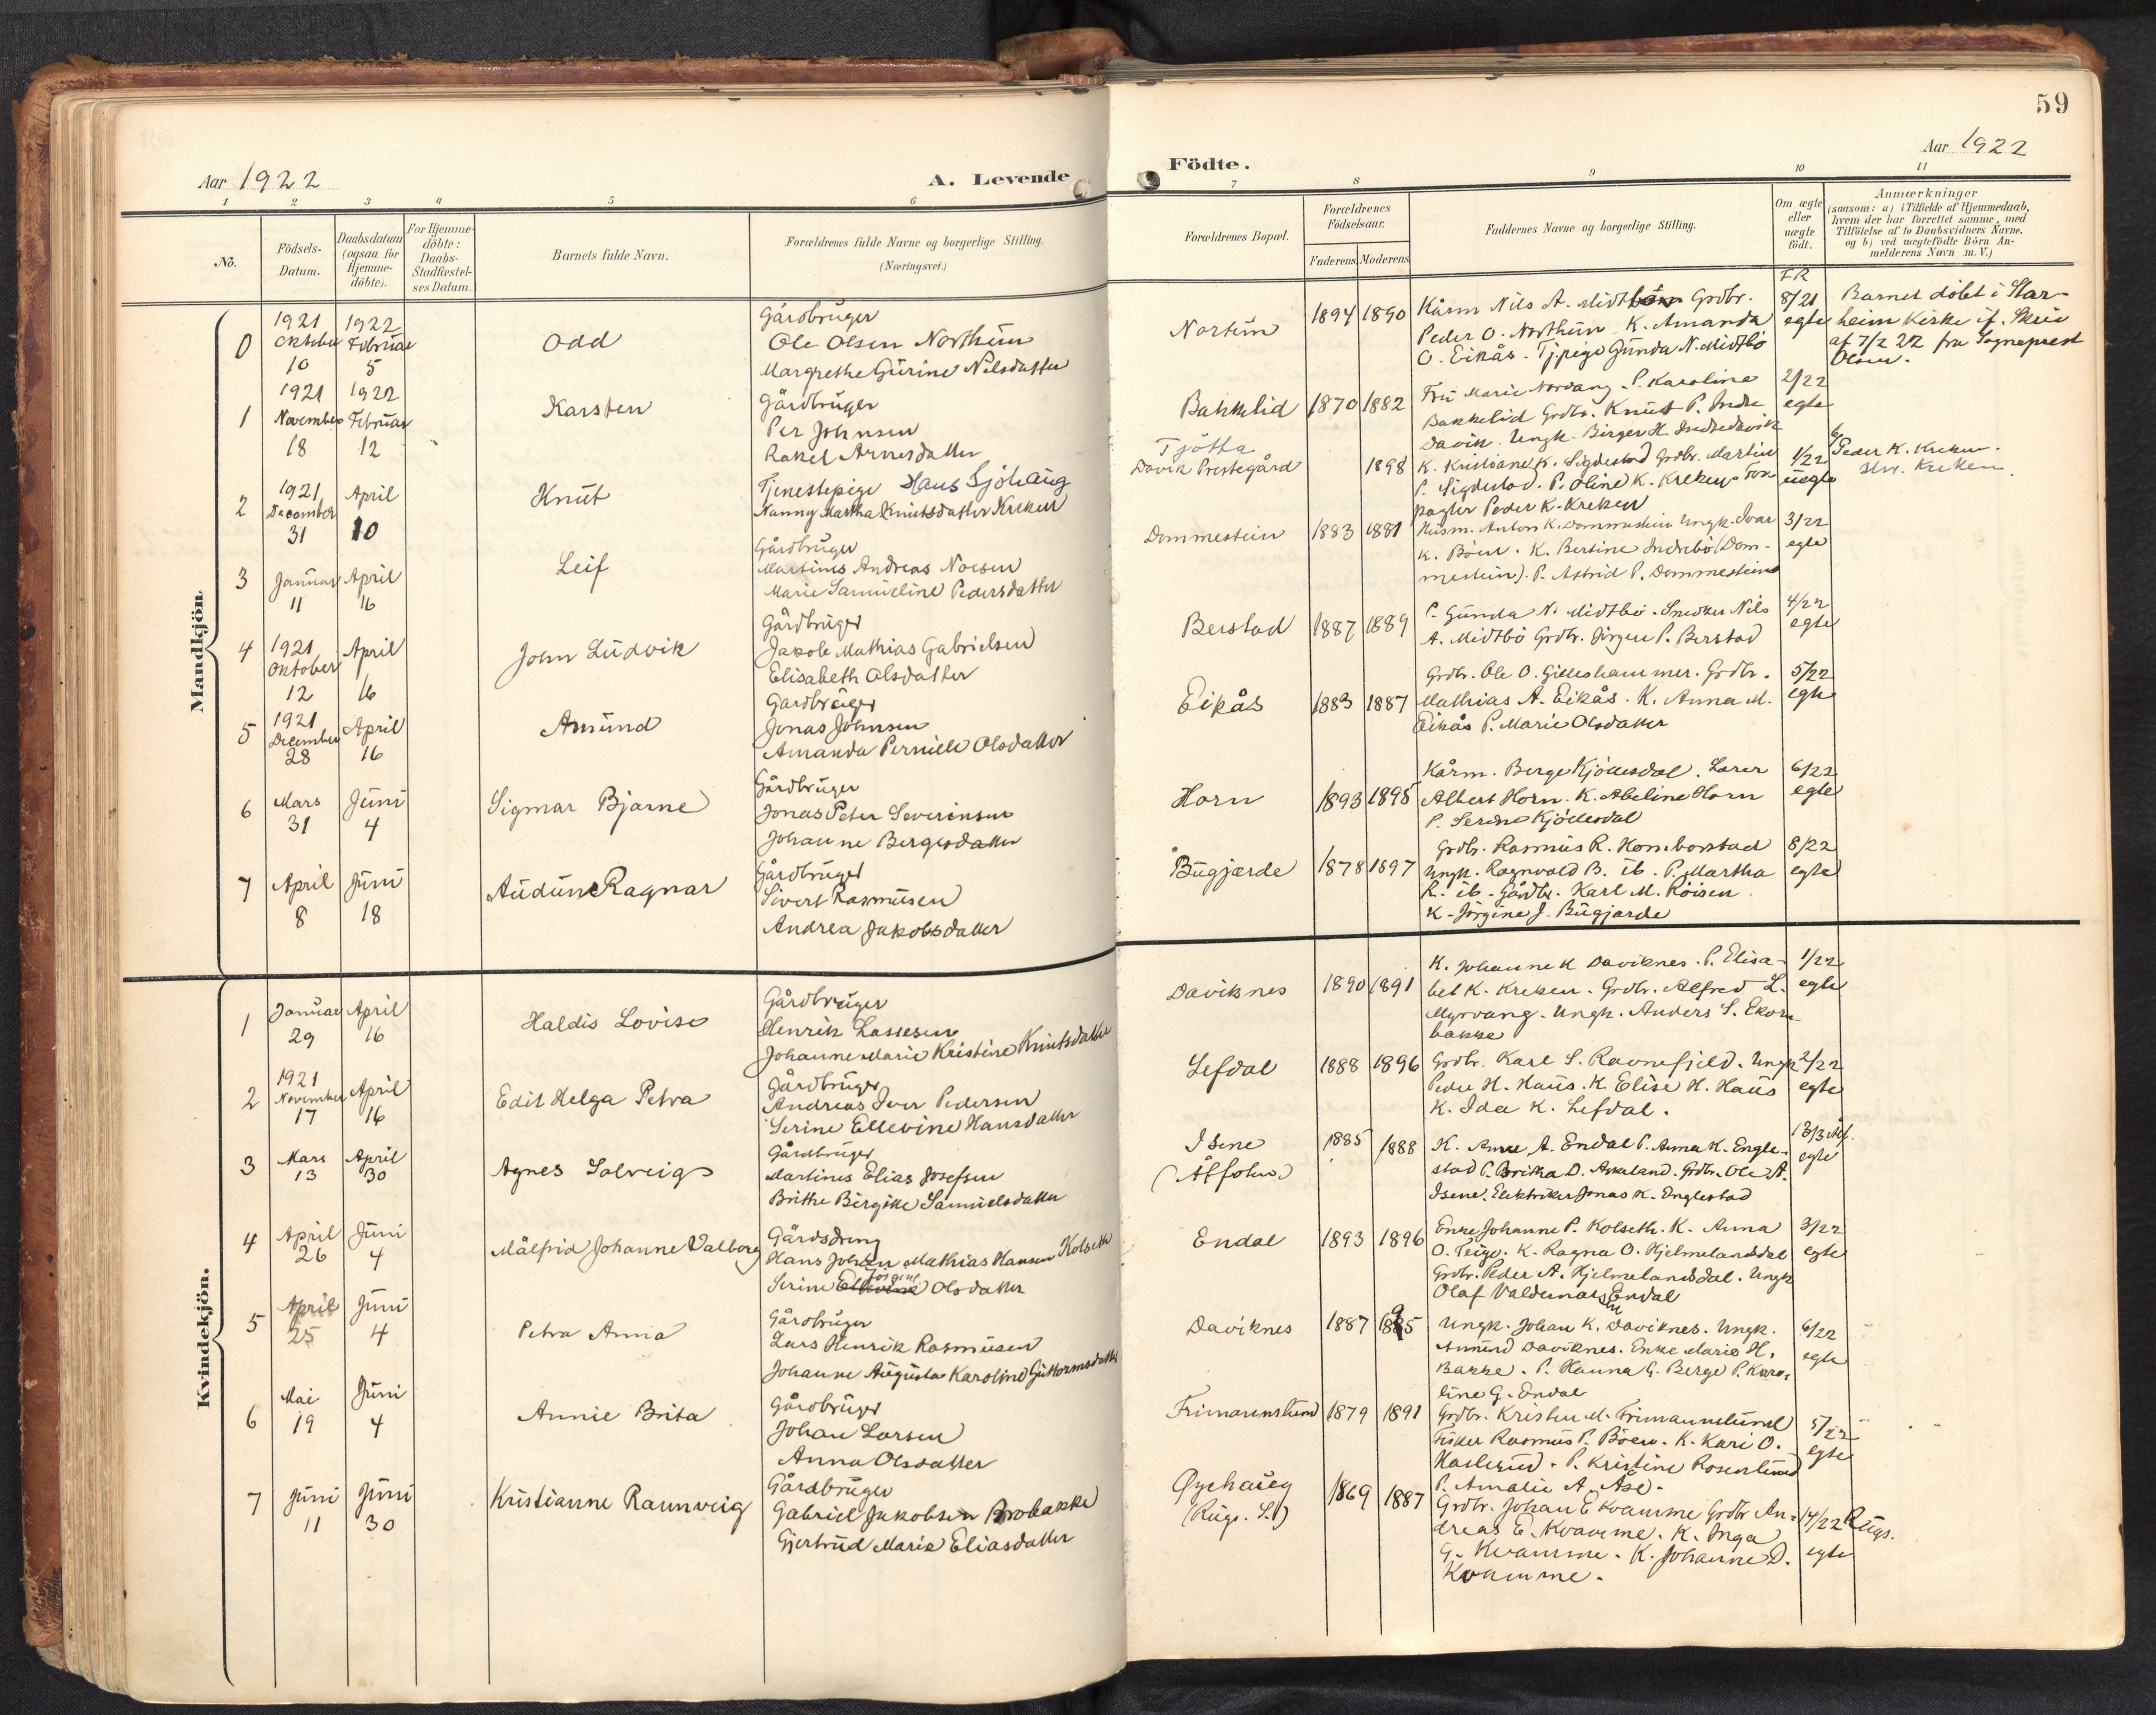 59
Aar 1922
A. Levende
Födte.
Aar 1922
1 2 3 4 5 6 7 8 9 10 11
No.
Födsels-
Datum.
Daabsdatum
(ogsaa for
Hjemme-
döbte).
For Hjemme-
döbte:
Daabs-
Stadfæstel-
ses Datum.
Barnets fulde Navn.
Forældrenes fulde Navne og borgerlige Stilling.
(Næringsvei.)
Forældrenes Bopæl.
Forældrenes
Födselsaar.
Faderens Moderens
Faddernes Navne og borgerlige Stilling.
Om ægte
eller
uægte
födt.
Anmærkninger
(saasom: a) i Tilfælde af Hjemmedaab,
hvem der har forrettet samme, med
Tilföielse af to Daabsvidners Navne,
og b) ved uægtefödte Börn An-
melderens Navn m. V.)
Mandkjön
0
1921
Oktober
10
1922
Februar
5
Odd
Gårdbruger
Ole Olsen Northun
Margrethe Gurine Nilsdatter
Nortun
1894 1890
Kårm Nils A. Midtbön Grdbr.
Peder O. Northun. K. Amanda
O. Eikås. Tj.pige Gunda N. Midtbö
F.R
8/21
egte
Barnet döbt i Star-
heim Kirke if. Skriv
af 7/2 22 fra Sogneprest
Olsen.
1
1921
November
18
1922
Februar
12
Karsten
Gårdbruger
Per Johnsen
Rakel Arnesdatter
Bakkelid
1870 1882
Fru Marie Nordang. P. Karoline
Bakkelid Grdbr. Knut P. Indre
Davik. Ungk. Birger H. Indredavik
2/22
egte
2
1921
December
31
April
10
Knut
Tjenestepige Hans Sjöhaug
Nanny Martha Knutsdatter Kreken
Tjötta
Davik Prestegård
1898
K. Kristiane K. Sigdestad Grdbr. Martin
P. Sigdestad. P. Oline K. Kreken. For-
pagter Peder K. Kreken
1/22
uegte
b/
Peder K. Kreken.
skr. Kreken
3
Januar
11
April
16
Leif
Gårdbruger
Martinus Andreas Noesen
Marie Samueline Pedersdatter
Dommestein
1883 1881
Husm. Anton K. Dommestein Ungk. Ivar
K. Böen. K. Bertine Indrebö (Dom-
mestein). P. Astrid P. Dommestein
3/22
egte
4
1921
Oktober
12
April
16
John Ludvik
Gårdbruger
Jakob Mathias Gabrielsen
Elisabeth Olsdatter
Berstad
1887 1889
P. Gunda N. Midtbö. Snedker Nils
A. Midtbö Grdbr. Jörgen P. Berstad
4/22
egte
5
1921
December
28
April
16
Amund
Gardbruger
Jonas Johnsen
Amanda Pernille Olsdatter
Eikås
1883 1887
Grdbr. Ole O. Gilleshammer. Grdbr.
Mathias A. Eikås. K. Anna M.
Eikås P. Marie Olsdatter
5/22
egte
6
Mars
31
Juni
4
Sigmar Bjarne
Gårdbruger
Jonas Peter Severinsen
Johanne Bergesdatter
Horn
1893 1895
Kårm. Berge Kjöllesdal. Lærer
Albert Horn. K. Abeline Horn
P. Serine Kjöllesdal
6/22
egte
7
April
8
Juni
18
Audun Ragnar
Gårdbruger
Sivert Rasmusen
Andrea Jakobsdatter
Bugjærde
1878 1897
Grdbr. Rasmus R. Hornborstad
Ungk. Ragnvald B. ib. P. Martha
R. ib. Gårdbr. Karl M. Röisen
K. Jörgine J. Bugjærde
8/22
egte
Kvindekjön.
1
Januar
29
April
16
Haldis Lovise
Gårdbruger
Henrik Lassesen
Johanne Marie Kristine Knutsdatter
Daviknes
1890 1891
K. Johanne K Daviknes. P. Elisa-
bet K. Kreken. Grdbr. Alfred L.
Myrvang. Ungk. Anders S. Ekorn-
bakke
1/22
egte
2
1921
November
17
April
16
Edit Helga Petra
Gårdbruger
Andreas Iver Pedersen
Serine Ellevine Hansdatter
Lefdal
1888 1896
Grdbr. Karl S. Ravnefjeld. Ungk
Peder H. Haus. K. Elise H. Haus
K. Ida K. Lefdal.
2/22
egte
3
Mars
13
April
30
Agnes Solveig
Gårdbruger
Martinus Elias Josefsen
Brithe Birgitte Samuelsdatter
Isene
(Ålfoten)
1885 1888
K. Anne A. Endal P. Anna K. Engle-
stad P. Brithe D. Askeland. Grdbr. Ole A.
Isene. Elektriker Jonas K. Englestad
egte
4
April
26
Juni
4
Målfrid Johanne Valborg
Gårdsdreng
Hans Johan Mathias Hansen Kolseth
Serine Ellevine Jörgine Olsdatter
Endal
1893 1896
Enke Johanne P. Kolseth. K. Anna
O. Teige. K. Ragna O. Hjelmelandsdal
Grdbr. Peder A. Hjelmelandsdal. Ungk
Olaf Valdemarsen Endal
3/22
egte
5
April
25
Juni
4
Petra Anna
Gårdbruger
Lars Henrik Rasmusen
Johanne Augusta Karoline Guttormsdatter
Daviknes
1887 1895
Ungk. Johan K. Daviknes. Ungk.
Amund Daviknes. Enke Marie H.
Bakke. P. Hanna G. Berge P. Karo-
line G. Endal
6/22
egte
6
Mai
19
Juni
4
Annie Brita
Gårdbruger
Johan Larsen
Anna Olsdatter
Frimannslund
1879 1891
Grdbr. Kristen M. Frimannslund
Fisker Rasmus P. Böen. K. Kari O.
Haslerud. P. Kristine Rosenlund
P. Amalie A. Åse.
5/22
egte
7
Juni
11
Juni
30
Kristianne Raunveig
Gårdbruger
Gabriel Jakobsen Brobakke
Gjertrud Marie Eliasdatter
Øyehaug
(Rugs. S.)
1869 1887
Grdbr. Johan E Kvamme Grdbr An-
dreas E. Kvamme. K. Inga
G. Kvamme. K. Johanne D.
Kvamme.
14/22 Rugs.
egte